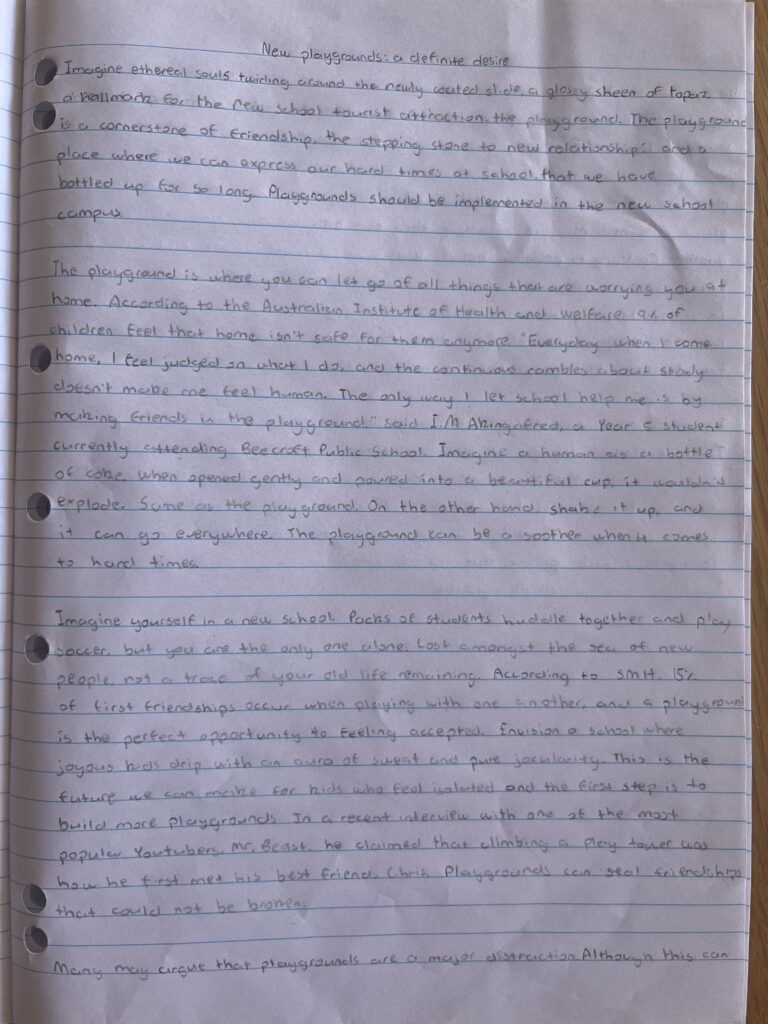 New playgrounds: a definite desire
Imagine ethereal souls twirling around the newly coated slide, a glossy sheen of topaz,
a hallmark for the new school tourist attraction, the playground. The playground
is a cornerstone of friendship, the stepping stone to new relationships and a
place where we can express our hard times at school, that we have
bottled up for so long. Playgrounds should be implemented in the new school
campus
The playground is where you can let go of all things that are worrying you at
home. According to the Australian Institute of Health and Welfare 9% of
children feel that home isn't safe for them anymore "Everyday when I come
home, I feel judged on what I do, and the continuous rambles about study
doesn't make me feel human. The only way I let school help me is by
making friends in the playground." said I.M Akingafred, a Year 5 student
currently attending Beecroft Public School. Imagine a human as a bottle
of coke, when opened gently and poured into a beautiful cup, it wouldn't
explode. Same as the playground. On the other hand, shake it up, and
it can go everywhere. The playground can be a soother when it comes
to hard times.
Imagine yourself in a new school. Packs of students huddle together and play
soccer, but you are the only one alone. Lost amongst the sea of new
people, not a trace of your old life remaining. According to SMH, 15%
of first friendships occur when playing with one another, and a playground
is the perfect opportunity to feeling accepted. Envision a school where
joyous kids drip with an aura of sweat and pure jocularity. This is the
future we can make for kids who feel isolated and the first step is to
build more playgrounds. In a recent interview with one of the most
popular Youtubers, Mr, Beast, he claimed that climbing a play tower was
how he first met his best friend, Chris. Playgrounds can seal friendships
that could not be broken.
Many may argue that playgrounds are a major distraction. Although this can